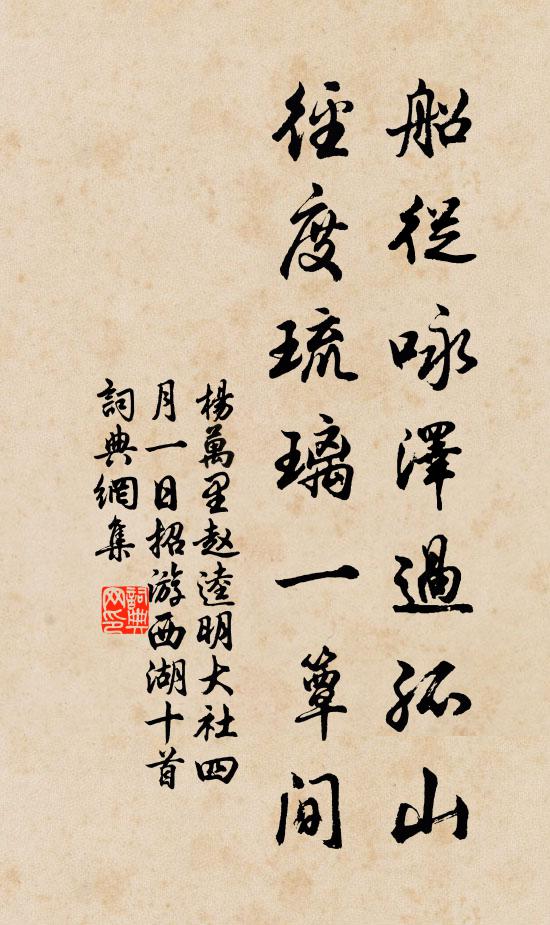 船從咏澤過孤山
徑度琉璃一簟間
楊萬里赵逵明大社四
月一日招游西湖十首
詞典網集
詞典
网印